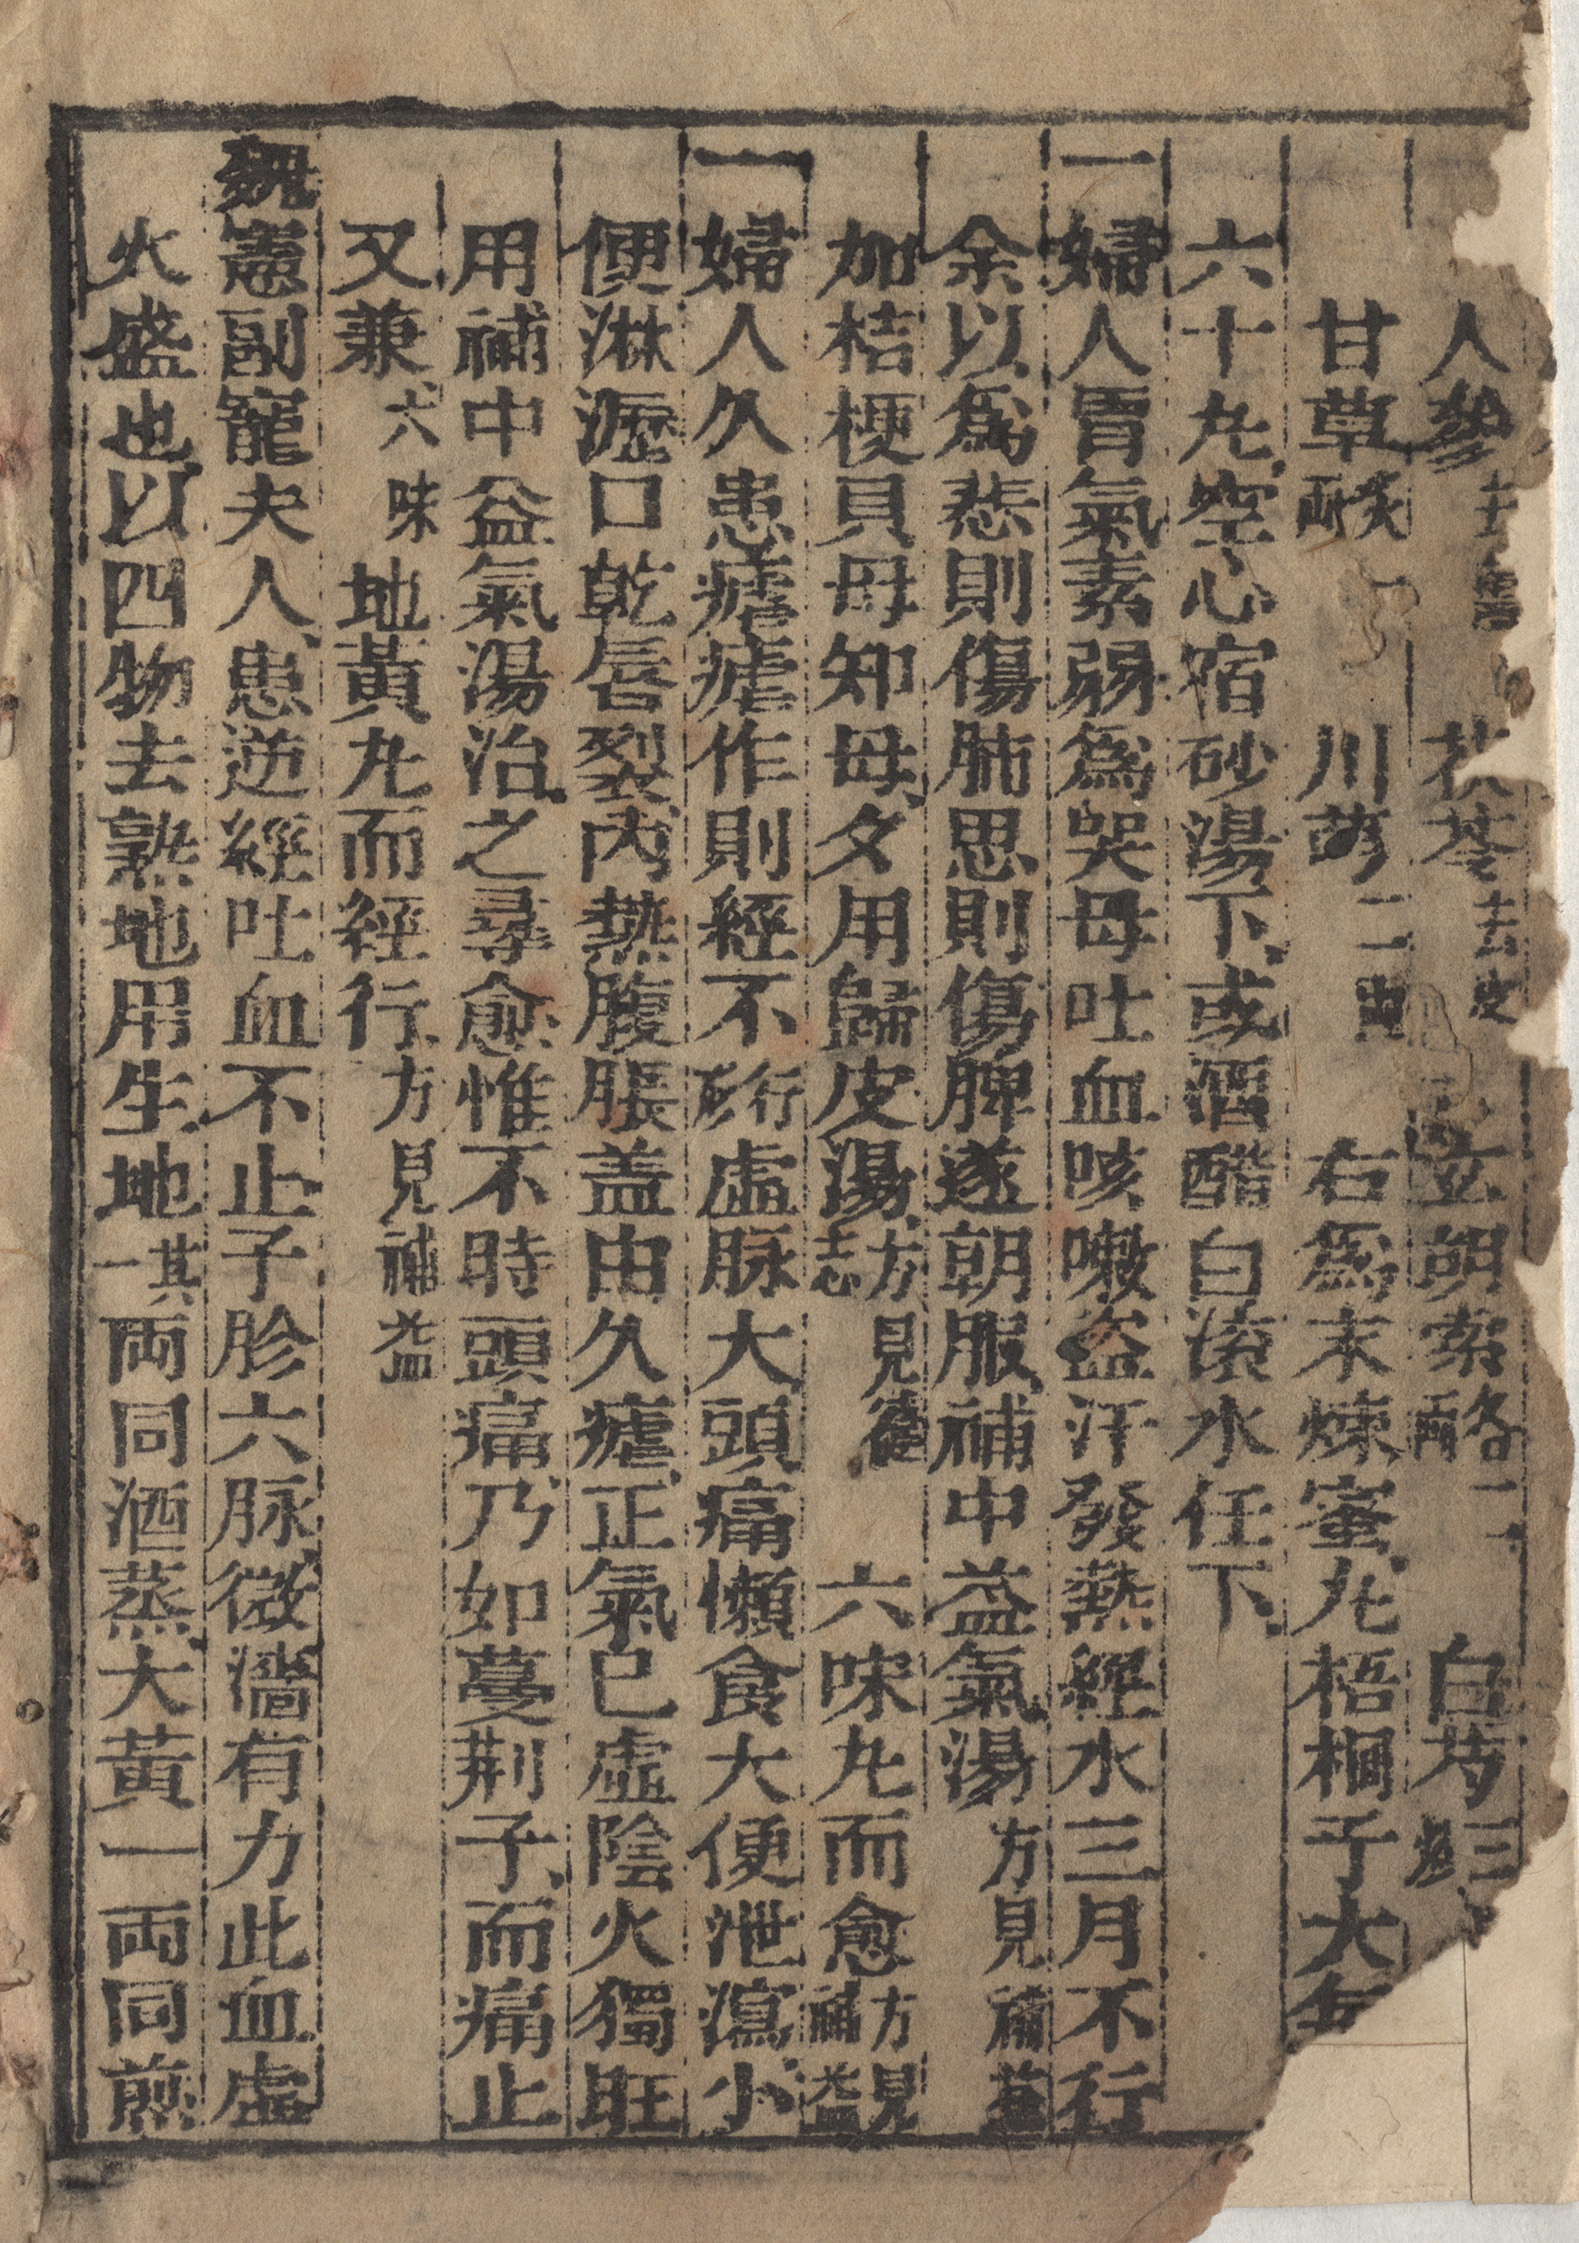 人參去蘆 茯苓去皮 玄胡索各二兩 白芍三
甘草炙 川芎二兩 右爲末煉蜜丸梧桐子大每
六十丸空心宿砂湯下或酒醋白滚水任下
一婦人胃氣素弱爲哭母吐血咳嗽盗汗發熱經水三月不行
余以爲悲則傷肺思則傷脾遂朝服補中益氣湯方見補益
加桔梗貝母知母夕用歸皮湯方見志 六味丸而愈方見補益
一婦人久患瘧瘧作則經不行形虛脉大頭痛懶食大便泄瀉小
便淋瀝口乾唇裂内熱腹脹盖由久瘧正氣已虛陰火獨旺
用補中益氣湯治之尋愈惟不時頭痛乃如蔓荆子而痛止
又兼六味地黃丸而經行方見補益
魏憲副寵夫人患逆經吐血不止子胗六脉微濇有力此血虛
火盛也以四物去熟地用生地其一兩同酒蒸大黃一兩同煎